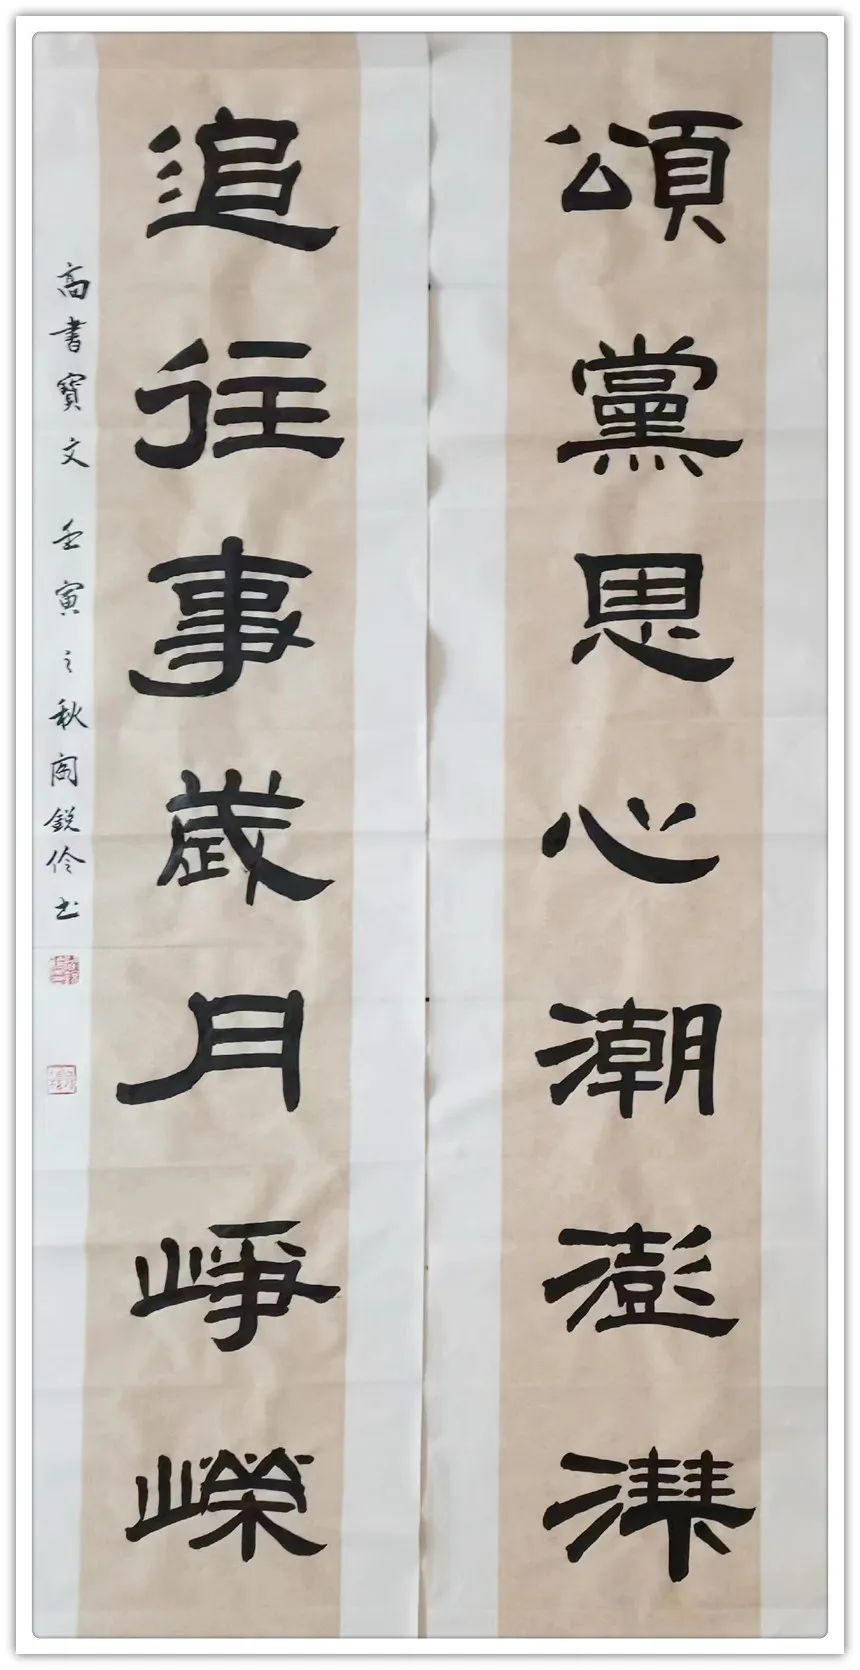 頌黨恩心潮澎湃
追往事歲月崢嶸
高書寶文 壬寅之秋閻鋭伶书